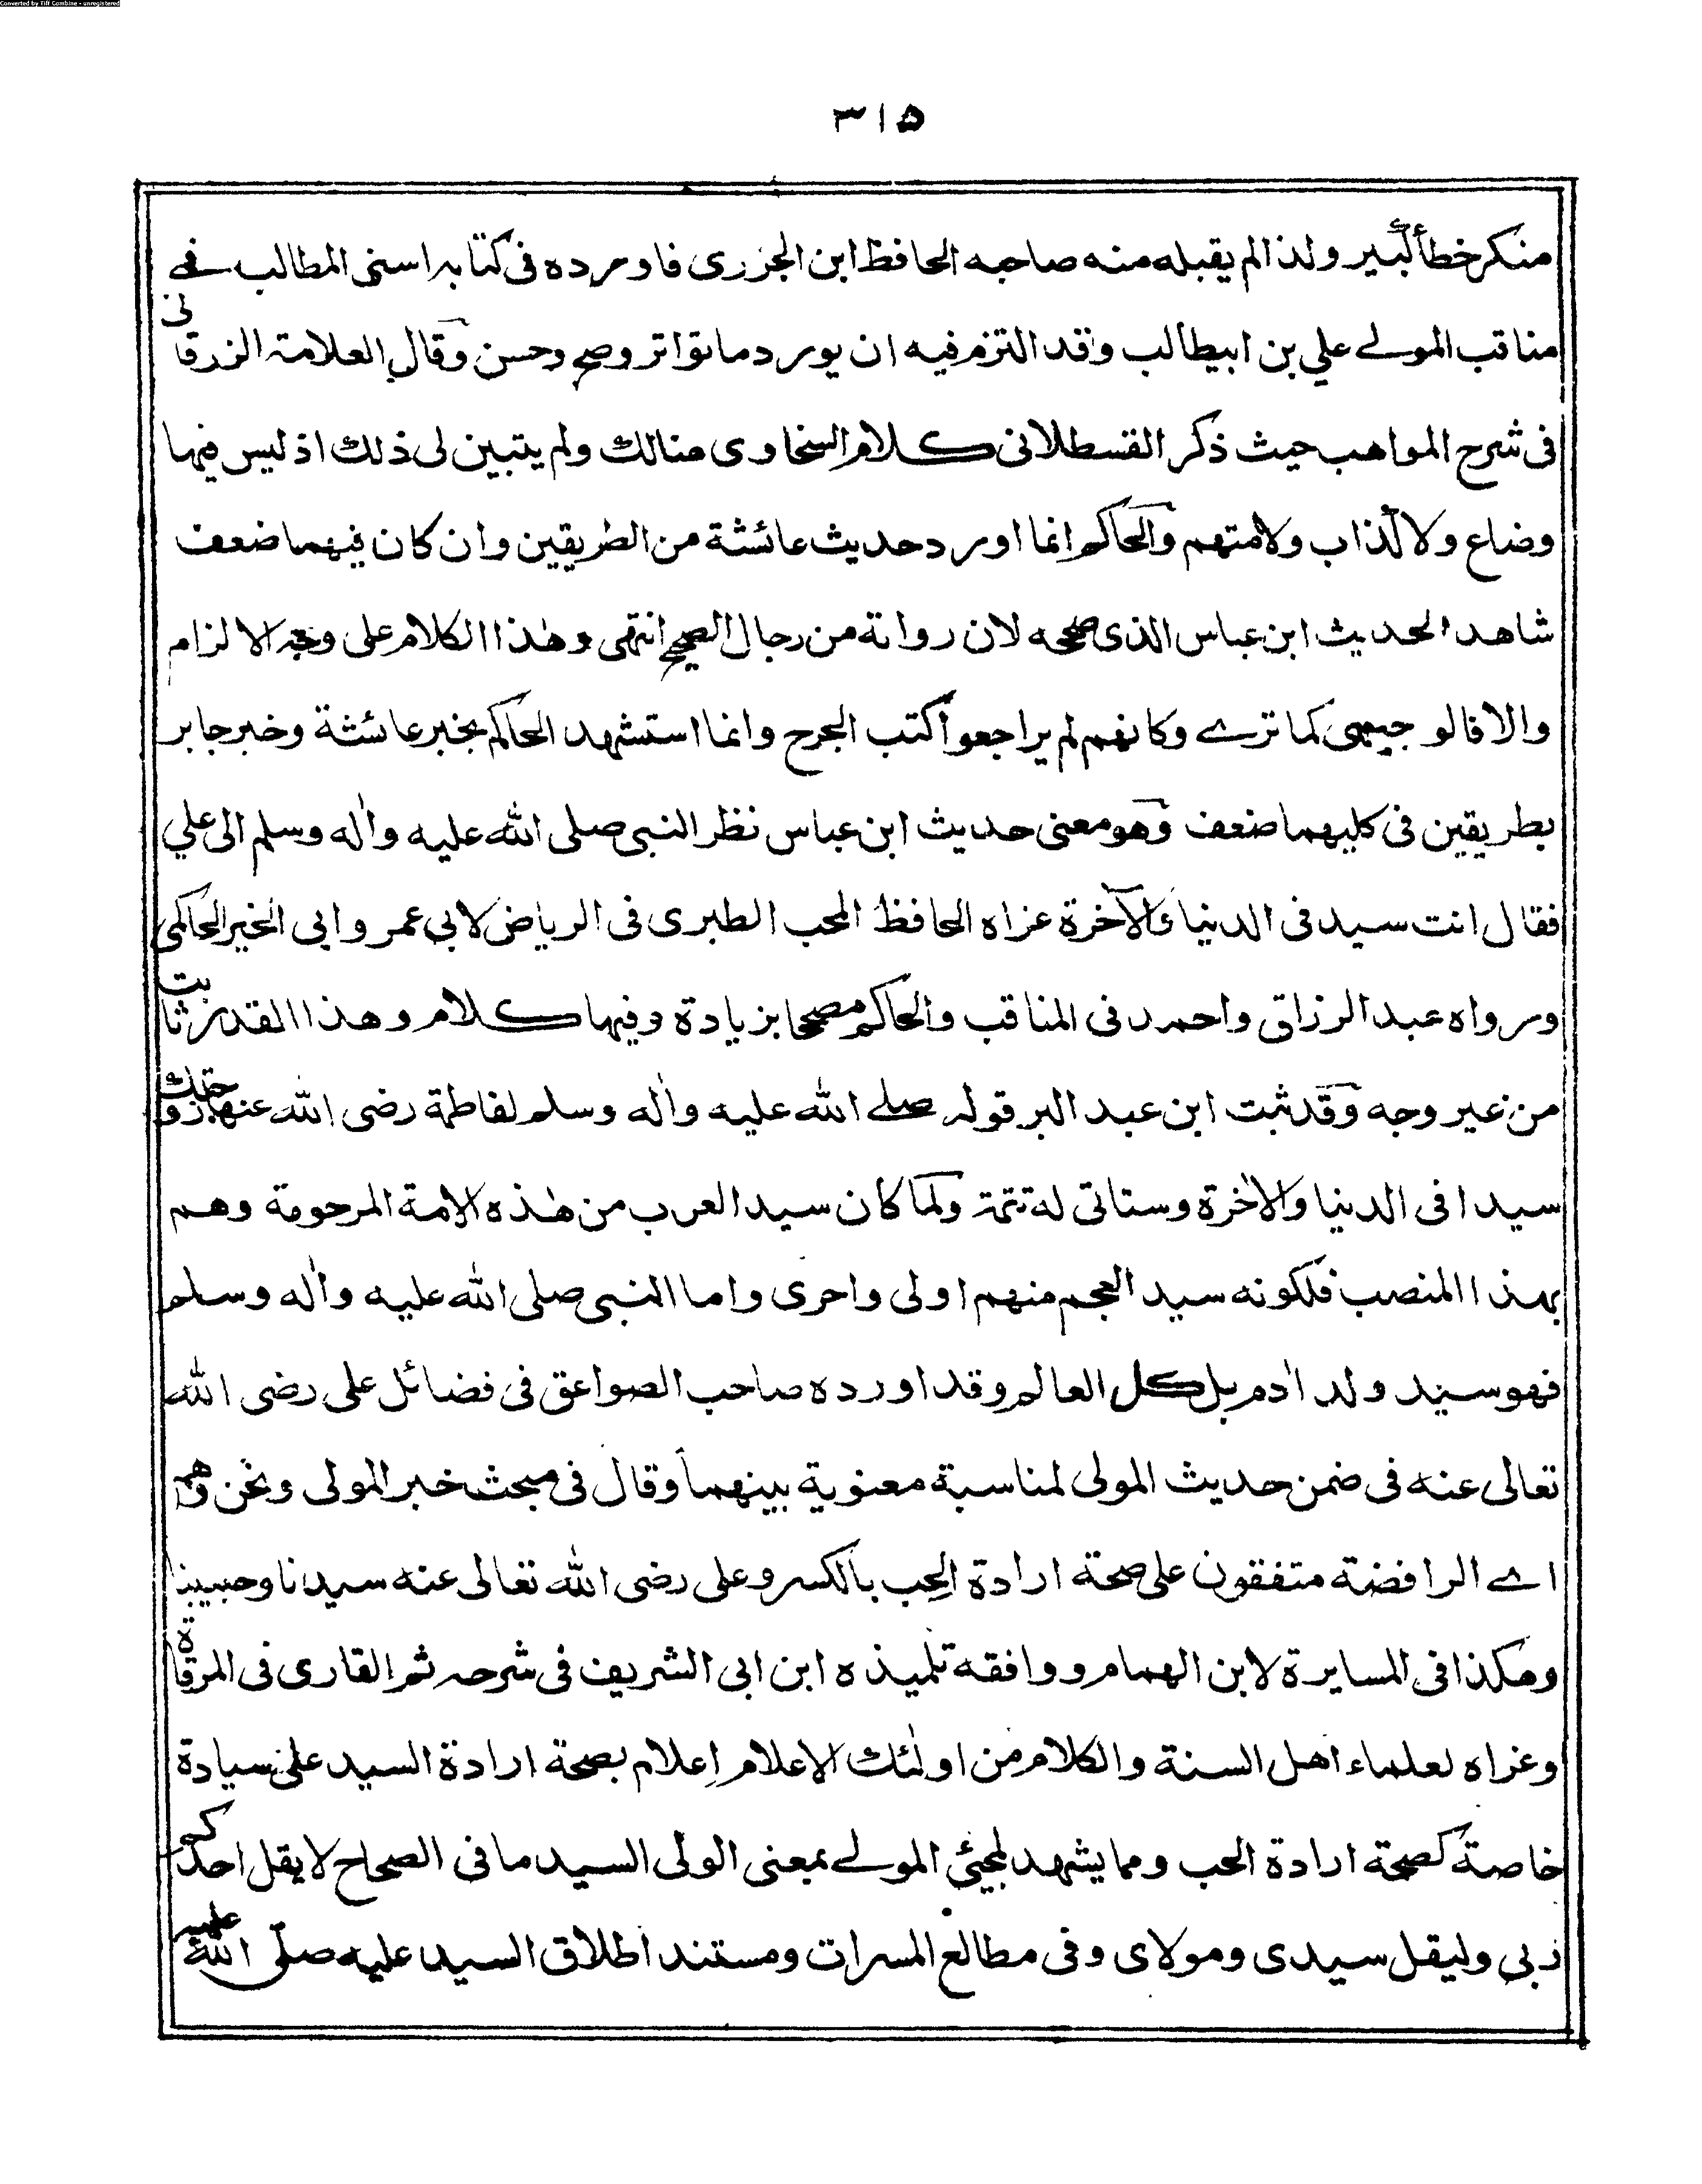 Converted by Tiff Combine - unregistered
٣١٥
منكر خطأ كبير ولذا لم يقبله منه صاحبه الحافظ ابن الجزرى فاورده فى كتابه اسنى المطالب فے
مناقب المولے علي بن ابيطالب وقد التزم فيه ان يورد ما تواتر وصح وحسن وقال العلامة الزرقانى
فى شرح المواهب حيث ذكر القسطلانى كلام السخاوى هنالك ولم يتبين لى ذلك اذ ليس فيها
وضاع ولا كذاب ولا متهم والحاكم انما اورد حديث عائشة من الطريقين وان كان فيهما ضعف
شاهدا لحديث ابن عباس الذى صححه لان رواته من رجال الصحيح انتهى وهذا الكلام على وجه الالزام
والا فالوجيهى كما ترے وكانهم لم يراجعوا كتب الجرح وانما استشهد الحاكم بخبر عائشة وخبر جابر
بطريقين فى كليهما ضعف وهو معنى حديث ابن عباس نظر النبى صلى الله عليه واٰله وسلم الى علي
فقال انت سيد فى الدنيا والآخرة عزاه الحافظ المحب الطبرى فى الرياض لابي عمر وابى الخير الحاكمى
ورواه عبد الرزاق واحمد فى المناقب والحاكم مصححا بزيادة وفيها كلام وهذا القدر ثابت
من غير وجه وقد ثبت ابن عبد البر قوله صلے الله عليه واٰله وسلم لفاطمة رضى الله عنها زوجتك
سيدا فى الدنيا والاٰخرة وستاتى له تتمة ولما كان سيد العرب من هٰذه الامة المرحومة وهم
بهذا المنصب فلكونه سيد العجم منهم اولى واحرى واما النبى صلى الله عليه واٰله وسلم
فهو سيد ولد اٰدم بل كل العالم وقد اورده صاحب الصواعق فى فضائل على رضى الله
تعالى عنه فى ضمن حديث المولى لمناسبة معنوية بينهما وقال فى مبحث خبر المولى ونحن وهم
اے الرافضة متفقون على صحة ارادة الحِب بالكسر وعلى رضى الله تعالى عنه سيدنا وحبيبنا
وهكذا فى المسايرة لابن الهمام ووافقه تلميذه ابن ابى الشريف فى شرحه ثم القارى فى المرقاة
وعزاه لعلماء اهل السنة والكلام من اولٰئك الاعلام اِعلام بصحة ارادة السيد على سيادة
خاصة كصحة ارادة الحب ومما يشهد لمجيئ المولے بمعنى الولى السيد ما فى الصحاح لا يقل احدكم
ربي وليقل سيدى ومولاى وفى مطالع المسرات ومستند اطلاق السيد عليه صلى الله عليه